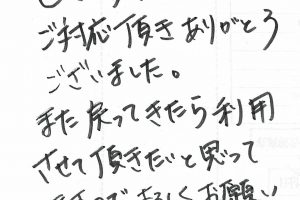 ご対応頂きありがとう
ございました。
また戻ってきたら利用
させて頂きたいと思って
ので よろしくお願い